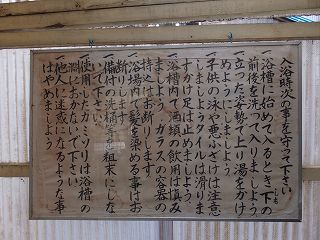 入浴時次の事を守って下さい
一 浴槽に始めて入るとき下の
前後を洗って入りましょう
しも
一 立った姿勢で上り湯をかけ
ぬようにしましょう
一 子供の泳や悪ふざけは注意
しましょうタイルは滑りま
すかけ足は止めましょう
一 浴槽内で酒類の飲用は慎み
ましょう ガラスの容器の
持込はお断りします
一 浴場内で髪を染める事はお
断りします
一 備付の洗桶等を粗末にしな
いで下さい
使用したカミソリは浴槽の
淵におかないで下さい
一 他人に迷惑になるような事
はやめましょう